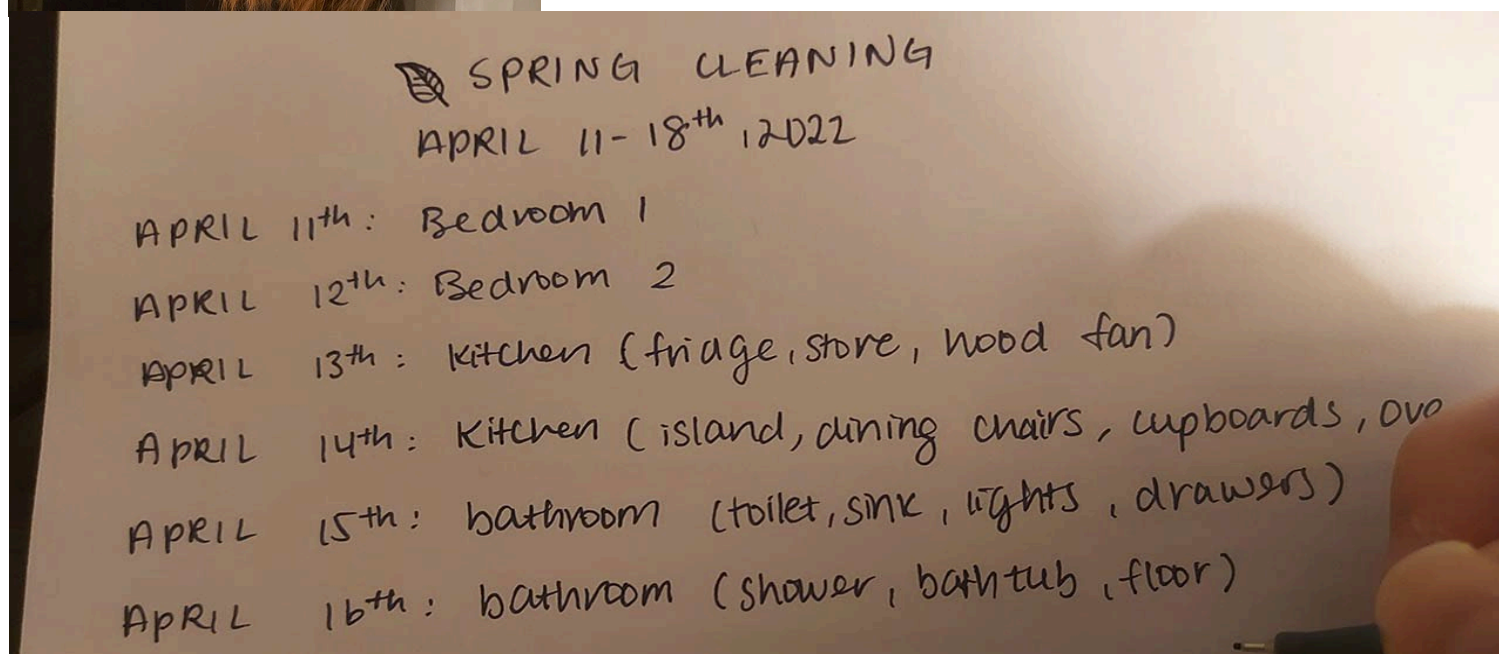 SPRING CLEANING
APRIL 11-18th, 2022
APRIL 11th: Bedroom 1
APRIL 12th: Bedroom 2
APRIL 13th: Kitchen (fridge, stove, hood fan)
APRIL 14th: Kitchen (island, dining chairs, cupboards,
APRIL 15th: bathroom (toilet, sink, lights, drawers)
APRIL 16th: bathroom (shower, bathtub, floor)